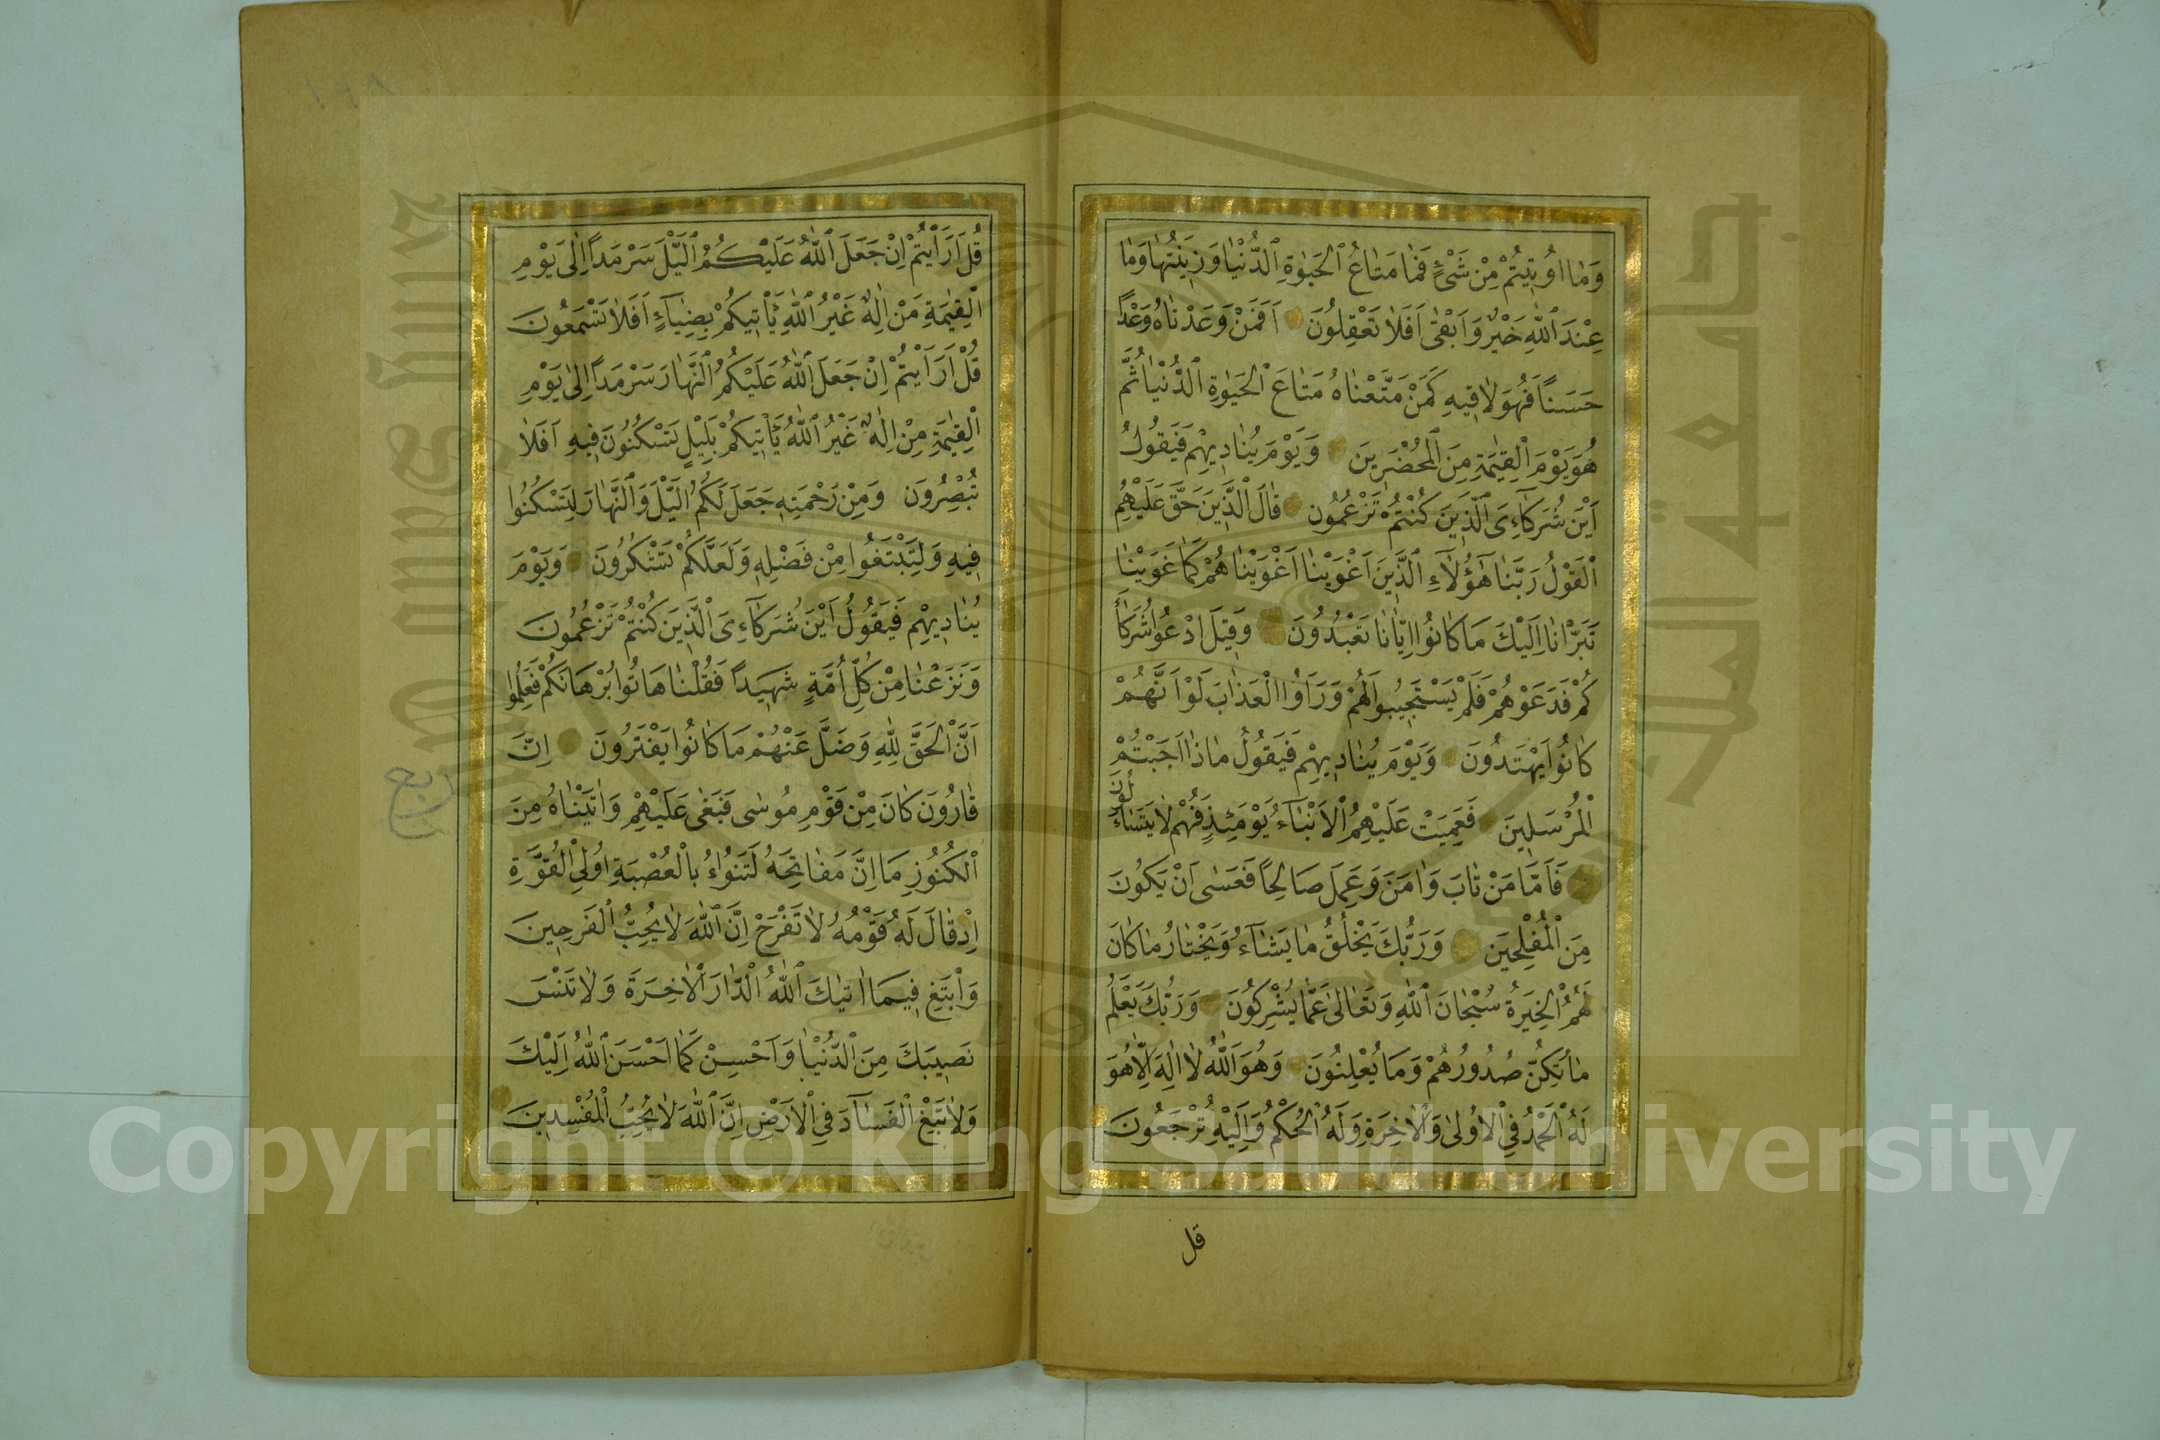 وَمَا اُو۫تِيتُمْ مِنْ شَىْءٍ فَمَتَاعُ الْحَيٰوةِ الدُّنْيَا وَزِينَتُهَا وَمَا
عِنْدَ اللّٰهِ خَيْرٌ وَاَبْقٰى اَفَلَا تَعْقِلُونَ اَفَمَنْ وَعَدْنَاهُ وَعْدًا
حَسَنًا فَهُوَ لَاقِيهِ كَمَنْ مَتَّعْنَاهُ مَتَاعَ الْحَيٰوةِ الدُّنْيَا ثُمَّ
هُوَ يَوْمَ الْقِيٰمَةِ مِنَ الْمُحْضَرِينَ وَيَوْمَ يُنَادِيهِمْ فَيَقُولُ
اَيْنَ شُرَكَآءِىَ الَّذِينَ كُنْتُمْ تَزْعُمُونَ قَالَ الَّذِينَ حَقَّ عَلَيْهِمُ
الْقَوْلُ رَبَّنَا هٰٓؤُلَآءِ الَّذِينَ اَغْوَيْنَا اَغْوَيْنَاهُمْ كَمَا غَوَيْنَا
تَبَرَّاْنَا اِلَيْكَ مَا كَانُوا اِيَّانَا يَعْبُدُونَ وَقِيلَ ادْعُوا شُرَكَآءَ
كُمْ فَدَعَوْهُمْ فَلَمْ يَسْتَجِيبُوا لَهُمْ وَرَاَوُا الْعَذَابَ لَوْ اَنَّهُمْ
كَانُوا يَهْتَدُونَ وَيَوْمَ يُنَادِيهِمْ فَيَقُولُ مَاذَا اَجَبْتُمُ
الْمُرْسَلِينَ فَعَمِيَتْ عَلَيْهِمُ الْاَنْبَآءُ يَوْمَئِذٍ فَهُمْ لَا يَتَسَآءَلُونَ
فَاَمَّا مَنْ تَابَ وَاٰمَنَ وَعَمِلَ صَالِحًا فَعَسٰى اَنْ يَكُونَ
مِنَ الْمُفْلِحِينَ وَرَبُّكَ يَخْلُقُ مَا يَشَآءُ وَيَخْتَارُ مَا كَانَ
لَهُمُ الْخِيَرَةُ سُبْحَانَ اللّٰهِ وَتَعَالٰى عَمَّا يُشْرِكُونَ وَرَبُّكَ يَعْلَمُ
مَا تُكِنُّ صُدُورُهُمْ وَمَا يُعْلِنُونَ وَهُوَ اللّٰهُ لَا اِلٰهَ اِلَّا هُوَ
لَهُ الْحَمْدُ فِي الْاُولٰى وَالْاٰخِرَةِ وَلَهُ الْحُكْمُ وَاِلَيْهِ تُرْجَعُونَ
قل
قُلْ اَرَاَيْتُمْ اِنْ جَعَلَ اللّٰهُ عَلَيْكُمُ الَّيْلَ سَرْمَدًا اِلٰى يَوْمِ
الْقِيٰمَةِ مَنْ اِلٰهٌ غَيْرُ اللّٰهِ يَاْتِيكُمْ بِضِيَآءٍ اَفَلَا تَسْمَعُونَ
قُلْ اَرَاَيْتُمْ اِنْ جَعَلَ اللّٰهُ عَلَيْكُمُ النَّهَارَ سَرْمَدًا اِلٰى يَوْمِ
الْقِيٰمَةِ مِنْ اِلٰهٌ غَيْرُ اللّٰهِ يَاْتِيكُمْ بِلَيْلٍ تَسْكُنُونَ فِيهِ اَفَلَا
تُبْصِرُونَ وَمِنْ رَحْمَتِهِ جَعَلَ لَكُمُ الَّيْلَ وَالنَّهَارَ لِتَسْكُنُوا
فِيهِ وَلِتَبْتَغُوا مِنْ فَضْلِهِ وَلَعَلَّكُمْ تَشْكُرُونَ وَيَوْمَ
يُنَادِيهِمْ فَيَقُولُ اَيْنَ شُرَكَآءِىَ الَّذِينَ كُنْتُمْ تَزْعُمُونَ
وَنَزَعْنَا مِنْ كُلِّ اُمَّةٍ شَهِيدًا فَقُلْنَا هَاتُوا بُرْهَانَكُمْ فَعَلِمُوا
اَنَّ الْحَقَّ لِلّٰهِ وَضَلَّ عَنْهُمْ مَا كَانُوا يَفْتَرُونَ اِنَّ
قَارُونَ كَانَ مِنْ قَوْمِ مُوسٰى فَبَغٰى عَلَيْهِمْ وَاٰتَيْنَاهُ مِنَ
الْكُنُوزِ مَا اِنَّ مَفَاتِحَهُ لَتَنُوءُ بِالْعُصْبَةِ اُولِي الْقُوَّةِ
اِذْ قَالَ لَهُ قَوْمُهُ لَا تَفْرَحْ اِنَّ اللّٰهَ لَا يُحِبُّ الْفَرِحِينَ
وَابْتَغِ فِيمَا اٰتٰيكَ اللّٰهُ الدَّارَ الْاٰخِرَةَ وَلَا تَنْسَ
نَصِيبَكَ مِنَ الدُّنْيَا وَاَحْسِنْ كَمَا اَحْسَنَ اللّٰهُ اِلَيْكَ
وَلَا تَبْغِ الْفَسَادَ فِي الْاَرْضِ اِنَّ اللّٰهَ لَا يُحِبُّ الْمُفْسِدِينَ
ربع
جامعة الملك سعود
King Saud University
Copyright © King Saud University